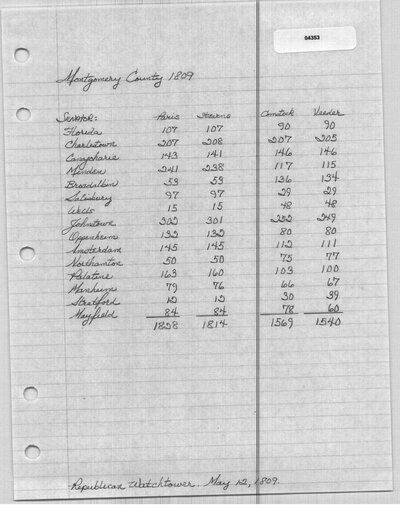 04353
Montgomery County 1809
Senator: Paris Stevens Comstock Veeder
Florida 107 107 90 90
Charlestown 207 208 207 205
Canajoharie 143 141 146 146
Minden 241 238 117 115
Broadalbin 53 53 136 134
Salisbury 97 97 29 29
Wells 15 15 48 48
Johnstown 302 301 252 249
Oppenheim 132 132 80 80
Amsterdam 145 145 112 111
Northampton 50 50 75 77
Palatine 163 160 103 100
Manheim 79 76 66 67
Stratford 12 12 30 39
Mayfield 84 84 78 60
1828 1814 1569 1540
Republican Watchtower. May 12, 1809.